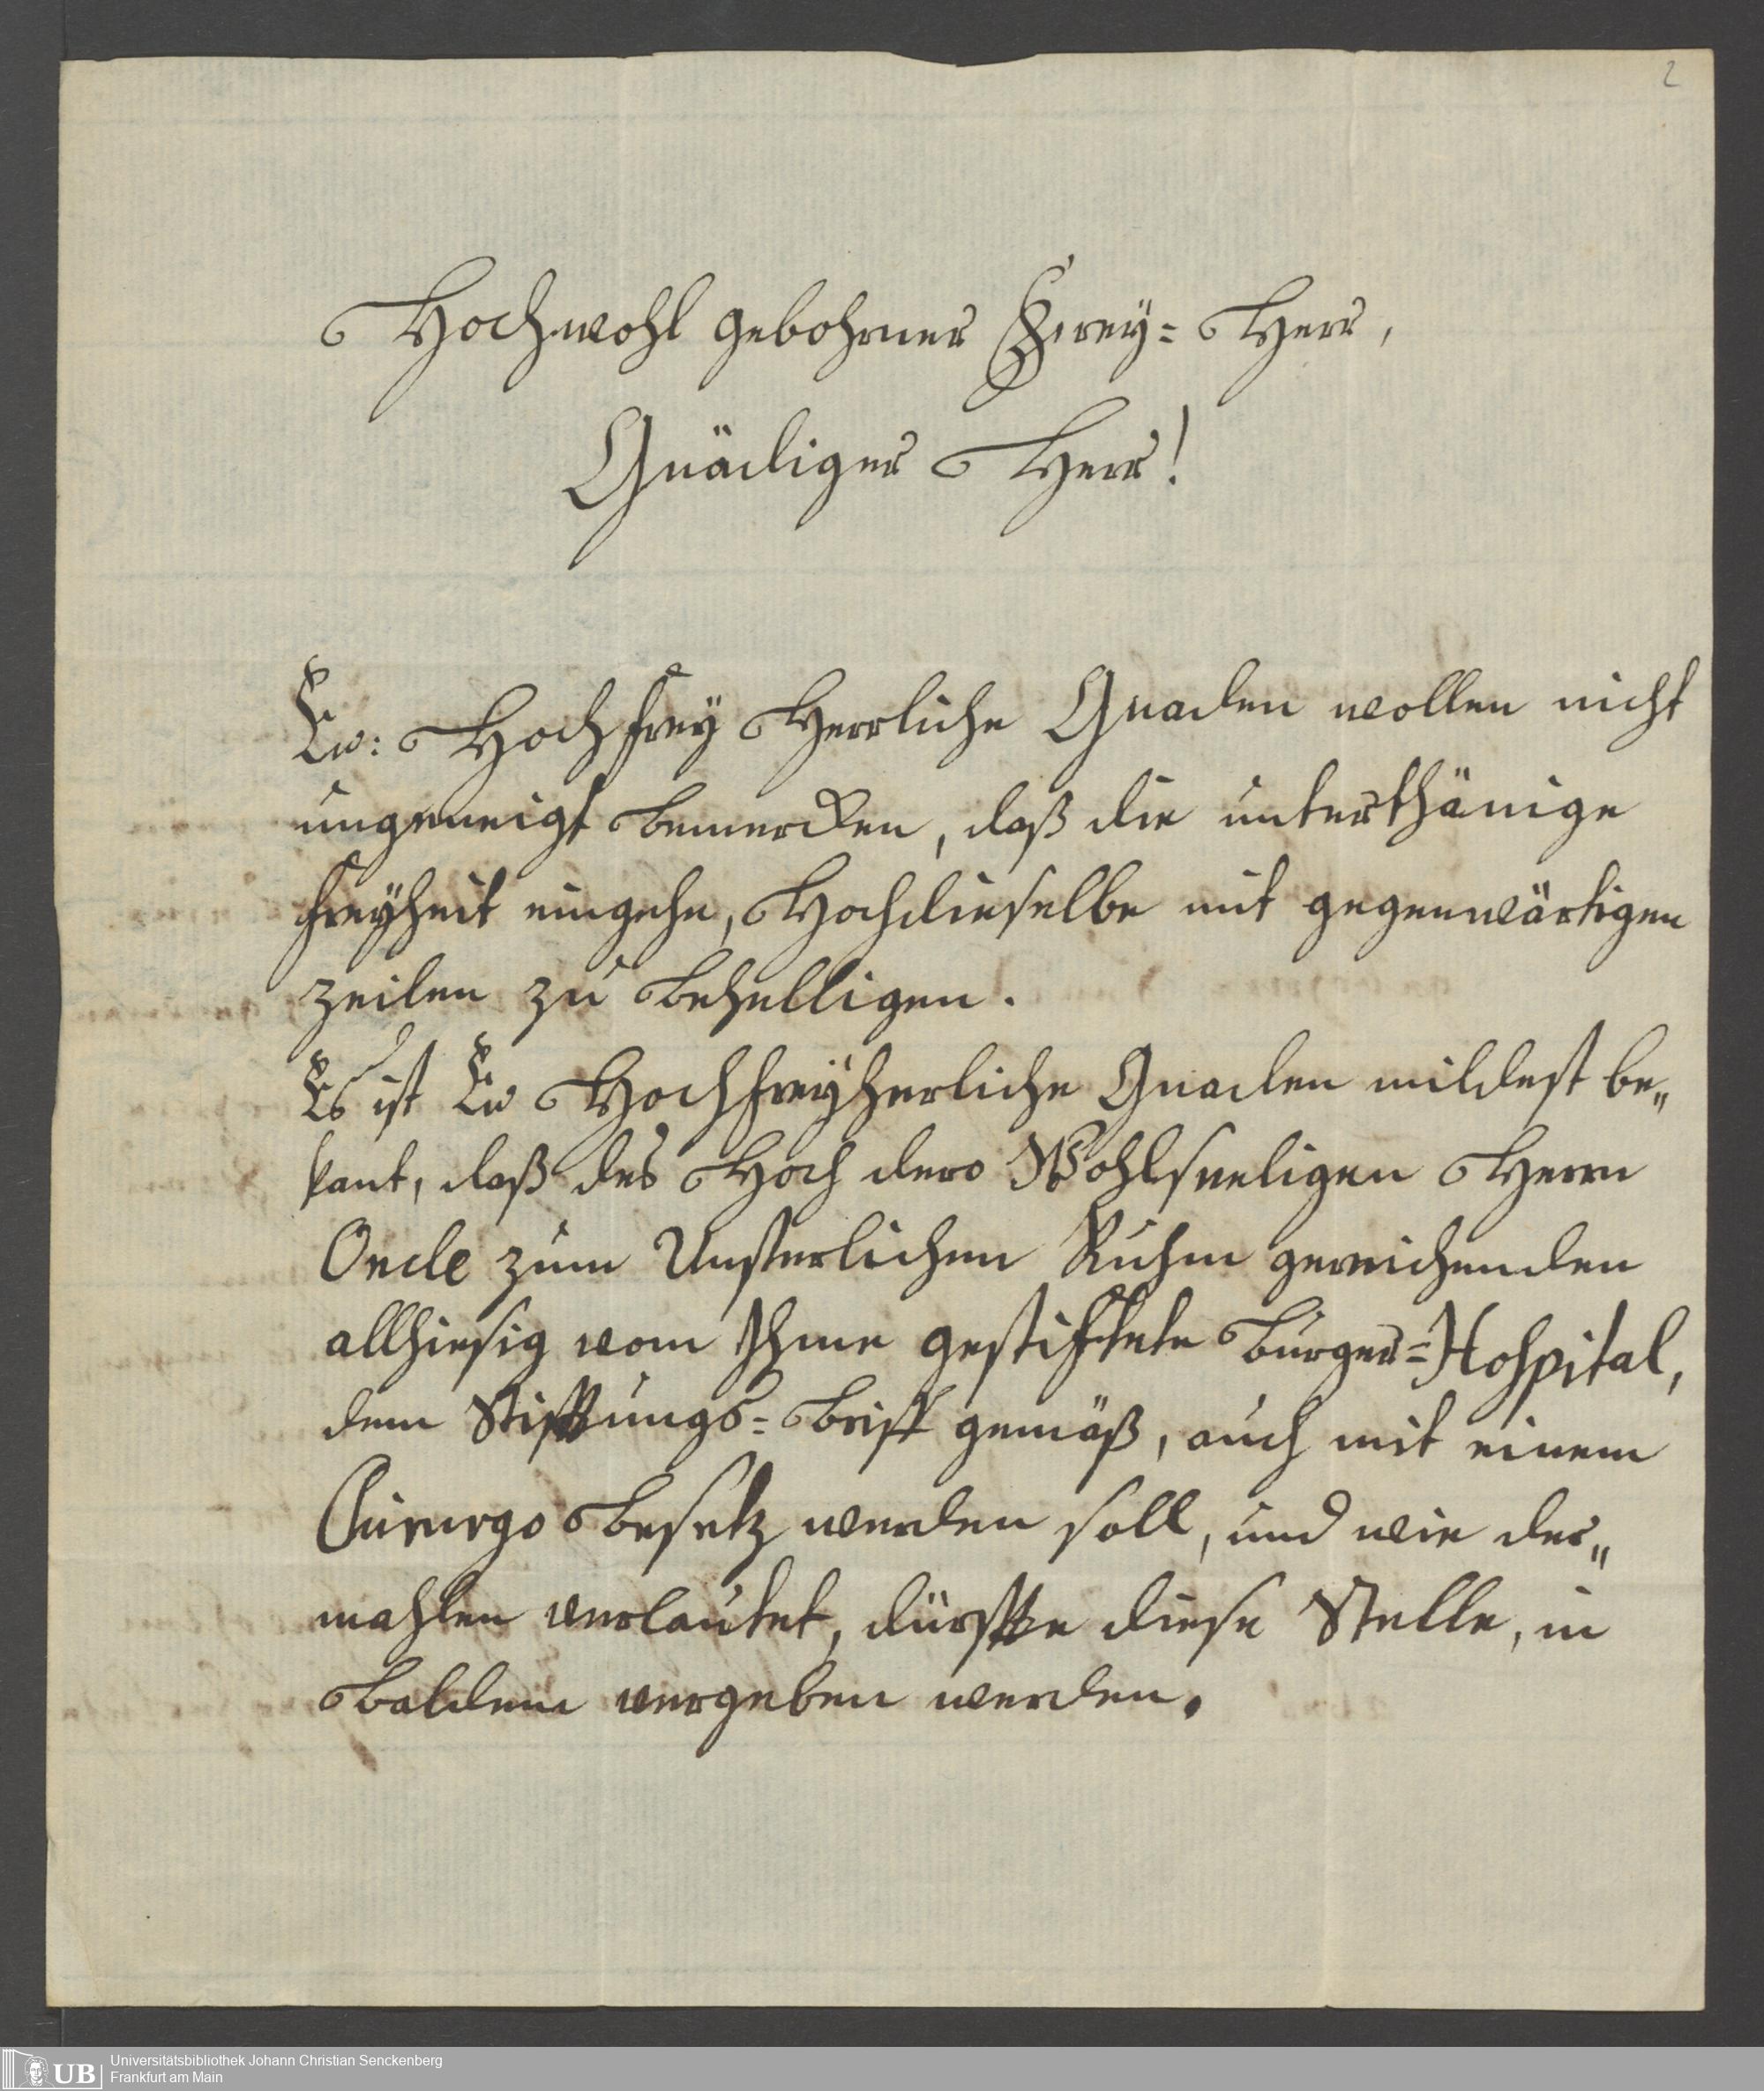 2
Hochwohl gebohrner Frey= Herr,
Gnädiger Herr!
Ew: Hochfrey Herrliche Gnaden wollen nicht
ungeneigt bemercken, daß die unterthänige
freyheit eingehe, Hochdieselbe mit gegenwärtigen
zeilen zu behelligen.
Es ist Ew Hochfreyherliche Gnaden mildest be„
kant, daß des Hoch dero Wohlseeligen Herrn
Oncle zum Unsterlichen Ruhm gereichenden
allhiesig vom Ihme gestifftete Burger=Hospital,
dem Stifftungs=Briff gemäß, auch mit einem
Chirurgo besetz werden soll, und wie der„
mahlen verlautet, dürffte diese Stelle, in
baldem vergeben werden.
UB
Universitätsbibliothek Johann Christian Senckenberg
Frankfurt am Main